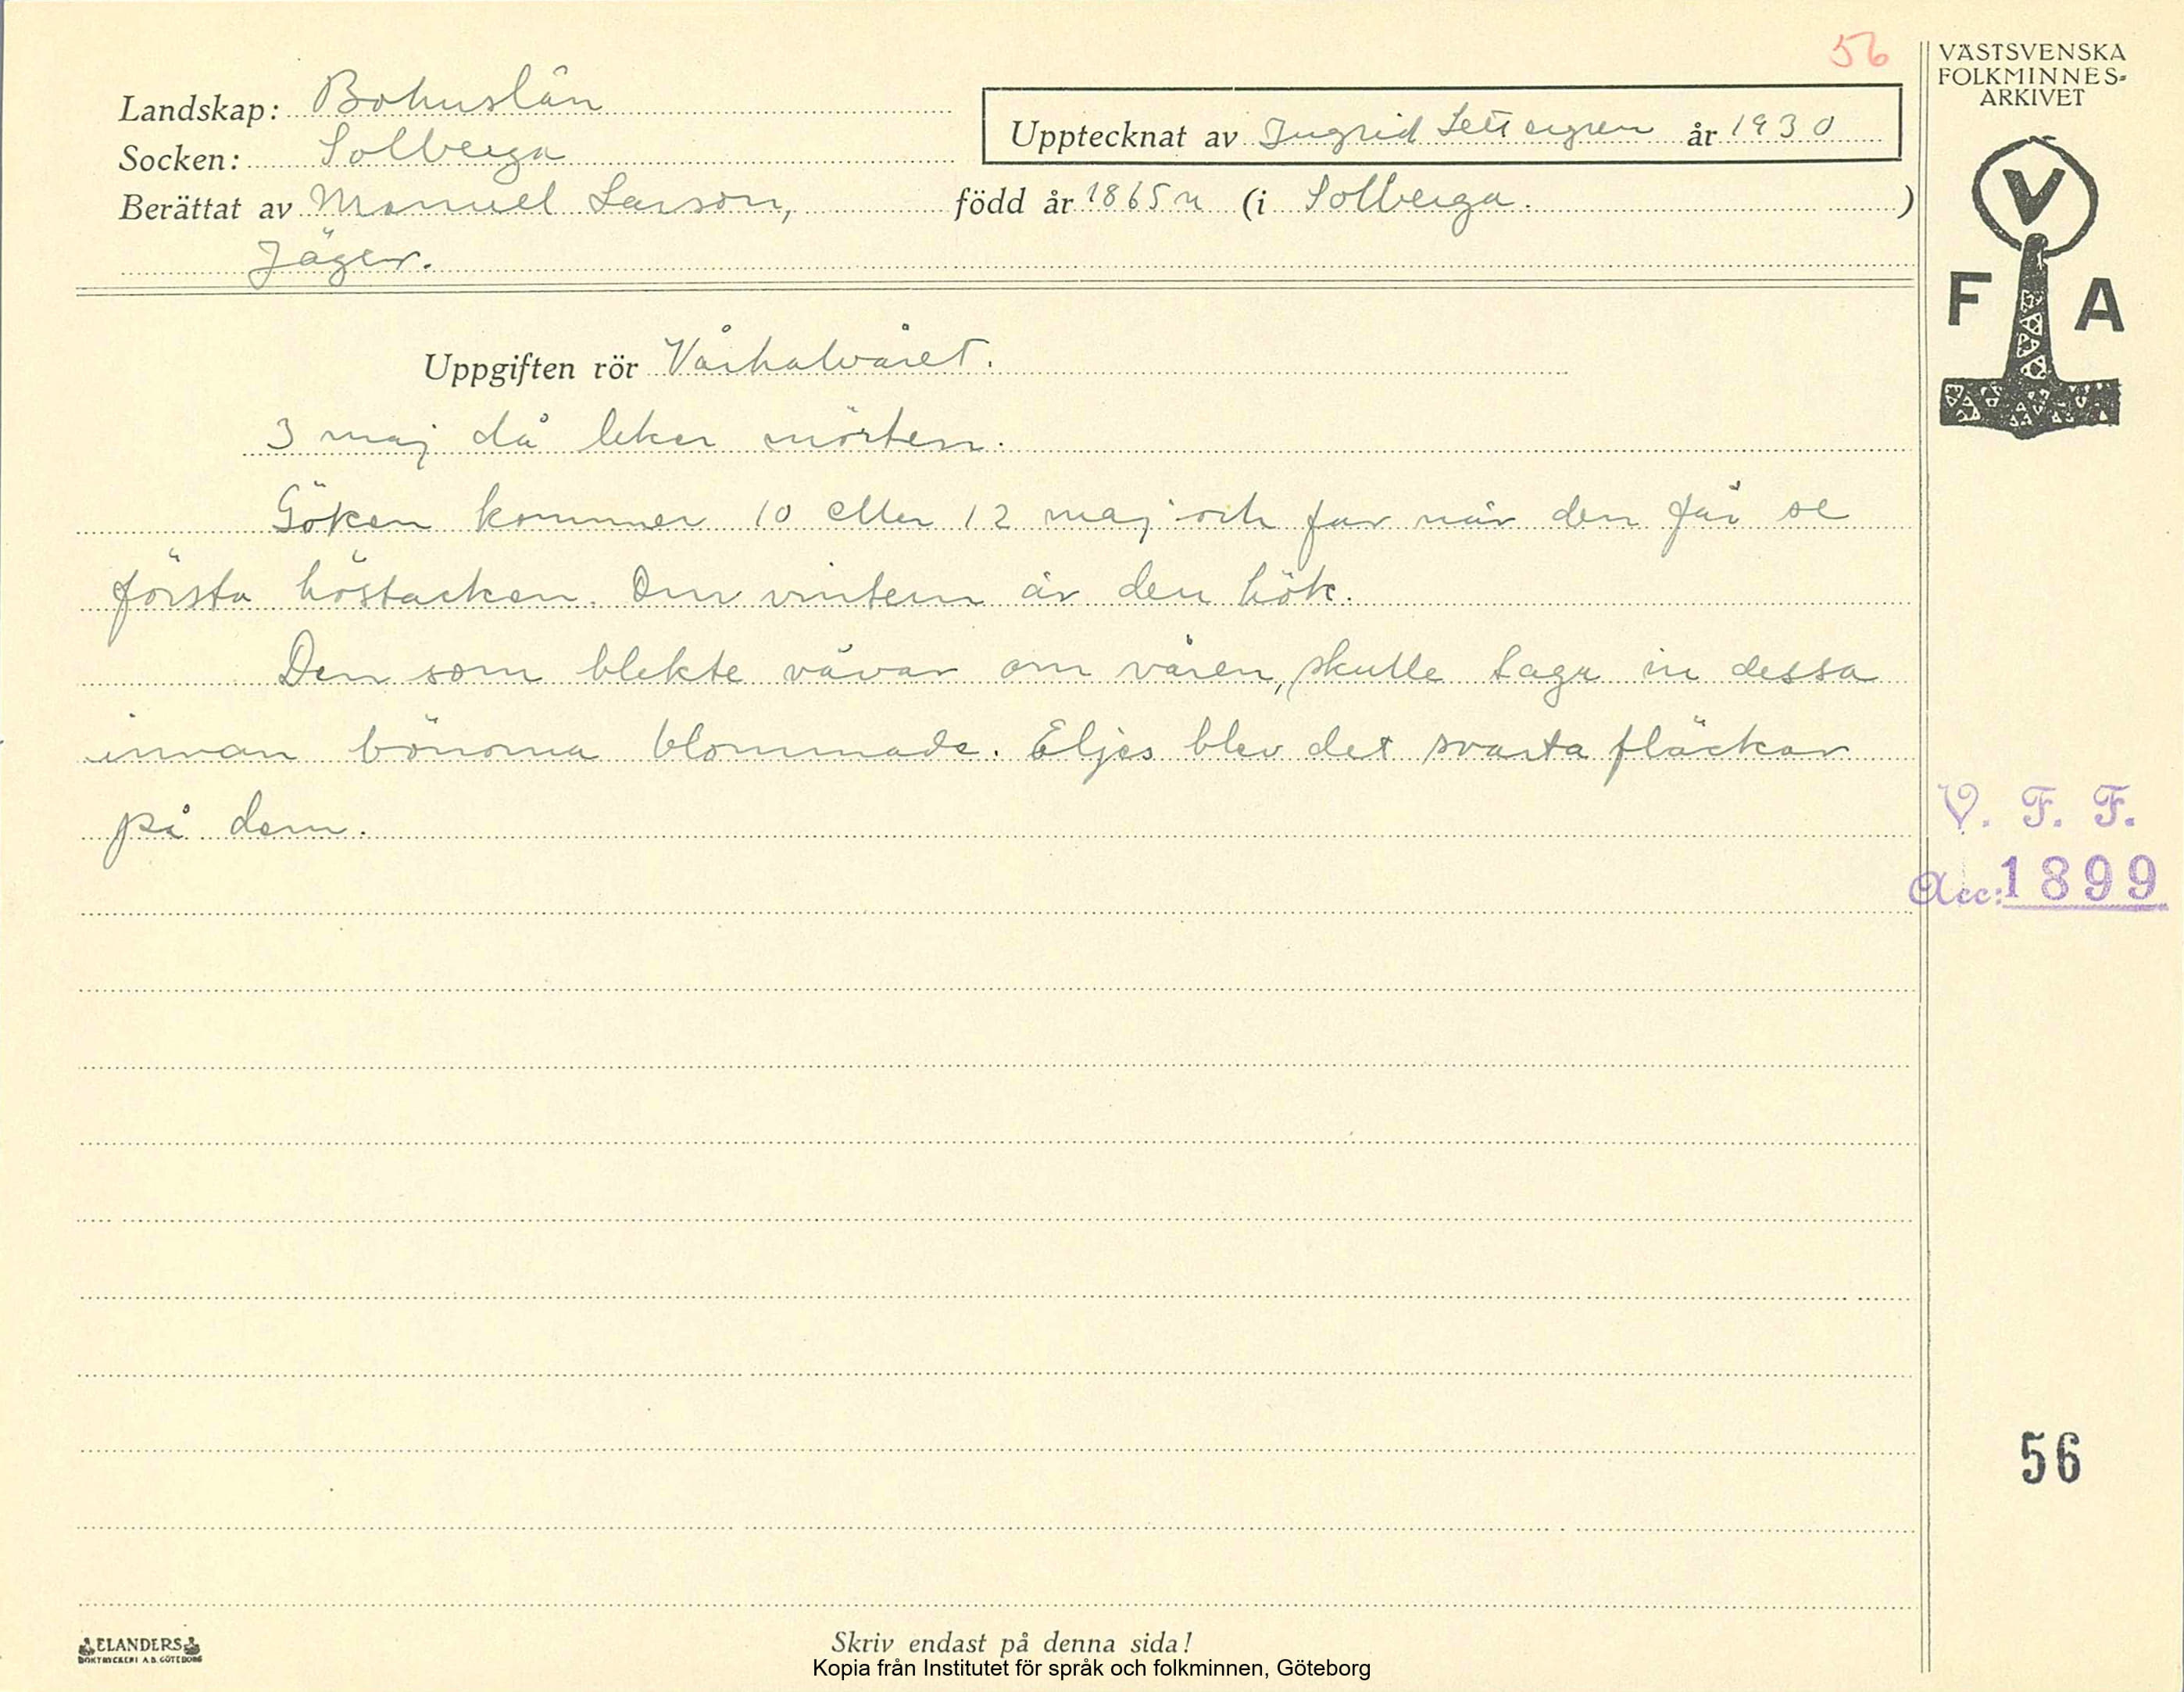 56
VÄSTSVENSKA
FOLKMINNES-
ARKIVET
Landskap: Bohuslän
Upptecknat av Ingrid Settergren år 1930
Socken: Solberga
Berättat av Manuel Larson, född år 1865 (i Solberga.)
Jäger.
V
F A
Uppgiften rör Vårhalvåret.
3 maj då leker mörten.
Göken kommer 10 eller 12 maj och far när den får se
första höstacken. Om vintern är den hök.
Den som blekte vävar om våren, skulle taga in dessa
innan bönorna blommade. Eljes blev det svarta fläckar
på dem.
V. F. F.
Acc: 1899
56
ELANDERS
BOKTRYCKERI A.B. GÖTEBORG
Skriv endast på denna sida!
Kopia från Institutet för språk och folkminnen, Göteborg